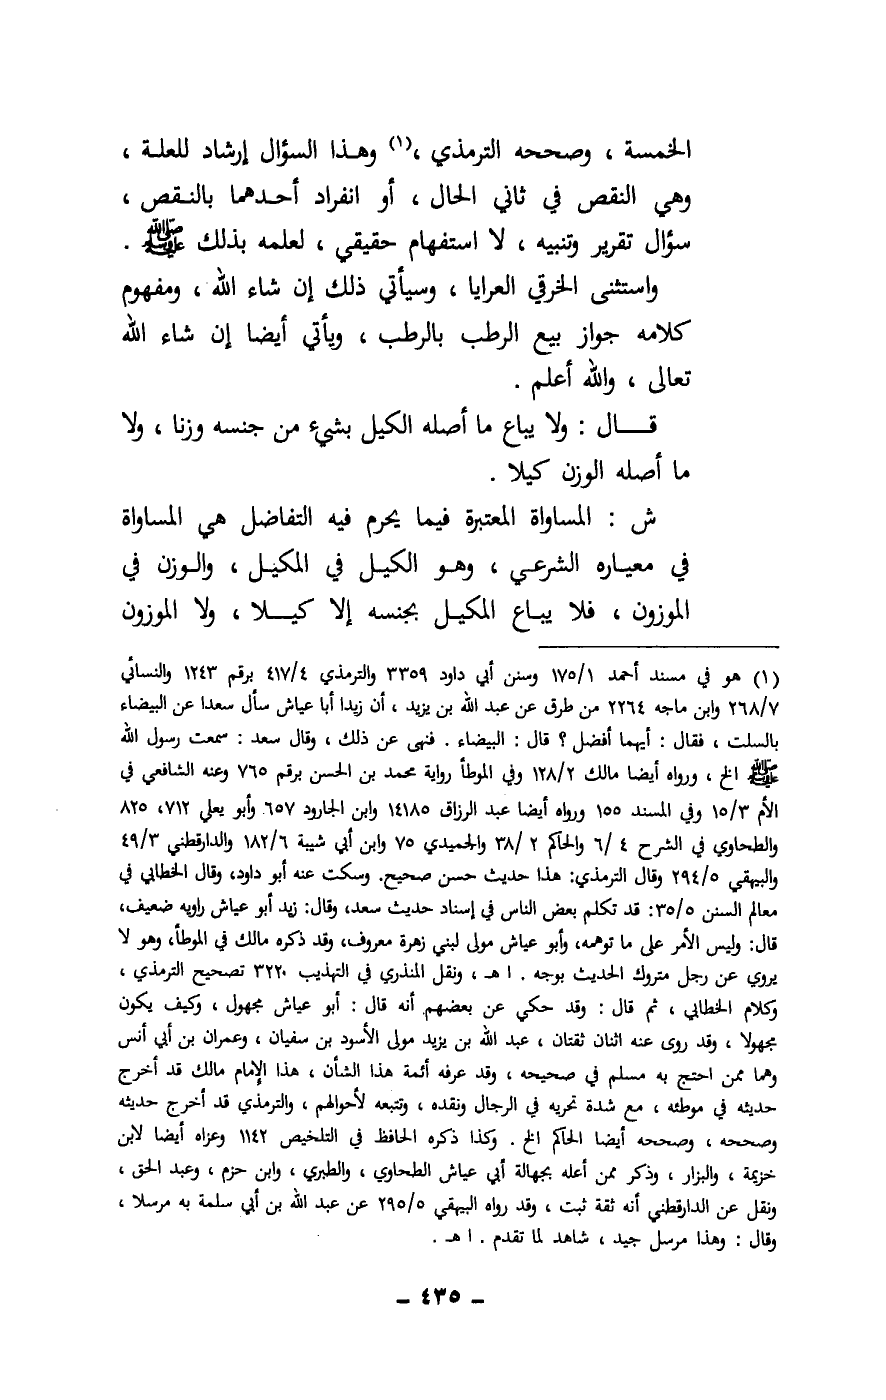 الخمسة ، وصححه الترمذي ،(١) وهـذا السؤال إرشاد للعلـة ،
وهي النقص في ثاني الحال ، أو انفراد أحـدهما بالنـقص ،
سؤال تقرير وتنبيه ، لا استفهام حقيقي ، لعلمه بذلك ﷺ .
واستثنى الخرقي العرايا ، وسيأتي ذلك إن شاء الله ، ومفهوم
كلامه جواز بيع الرطب بالرطب ، ويأتي أيضا إن شاء الله
تعالى ، والله أعلم .
قـــال : ولا يباع ما أصله الكيل بشيء من جنسه وزنا ، ولا
ما أصله الوزن كيلا .
ش : المساواة المعتبرة فيما يحرم فيه التفاضل هي المساواة
في معيـاره الشرعـي ، وهـو الكيل في المكيـل ، والـوزن في
الموزون ، فلا يبـاع المكيـل بجنسه إلا كيـــلا ، ولا الموزون
(١) هو في مسند أحمد ١٧٥/١ وسنن أبي داود ٣٣٥٩ والترمذي ٤١٧/٤ برقم ١٢٤٣ والنسائي
٢٦٨/٧ وابن ماجه ٢٢٦٤ من طرق عن عبد الله بن يزيد ، أن زيدا أبا عياش سأل سعدا عن البيضاء
بالسلت ، فقال : أيهما أفضل ؟ قال : البيضاء . فنهى عن ذلك ، وقال سعد : سمعت رسول الله
ﷺ الخ ، ورواه أيضا مالك ١٢٨/٢ وفي الموطأ رواية محمد بن الحسن برقم ٧٦٥ وعنه الشافعي في
الأم ١٥/٣ وفي المسند ١٥٥ ورواه أيضا عبد الرزاق ١٤١٨٥ وابن الجارود ٦٥٧ وأبو يعلي ٧١٢، ٨٢٥
والطحاوي في الشرح ٤ /٦ والحاكم ٢ /٣٨ والحميدي ٧٥ وابن أبي شيبة ١٨٢/٦ والدارقطني ٤٩/٣
والبيهقي ٢٩٤/٥ وقال الترمذي: هذا حديث حسن صحيح. وسكت عنه أبو داود، وقال الخطابي في
معالم السنن ٣٥/٥: قد تكلم بعض الناس في إسناد حديث سعد، وقال: زيد أبو عياش راويه ضعيف،
قال: وليس الأمر على ما توهمه، وأبو عياش مولى لبني زهرة معروف، وقد ذكره مالك في الموطأ، وهو لا
يروي عن رجل متروك الحديث بوجه . ا هـ ، ونقل المنذري في التهذيب ٣٢٢٠ تصحيح الترمذي ،
وكلام الخطابي ، ثم قال : وقد حكي عن بعضهم أنه قال : أبو عياش مجهول ، وكيف يكون
مجهولا ، وقد روى عنه اثنان ثقتان ، عبد الله بن يزيد مولى الأسود بن سفيان ، وعمران بن أبي أنس
وهما ممن احتج به مسلم في صحيحه ، وقد عرفه أئمة هذا الشأن ، هذا الإمام مالك قد أخرج
حديثه في موطئه ، مع شدة تحريه في الرجال ونقده ، وتتبعه لأحوالهم ، والترمذي قد أخرج حديثه
وصححه ، وصححه أيضا الحاكم الخ . وكذا ذكره الحافظ في التلخيص ١١٤٢ وعزاه أيضا لابن
خزيمة ، والبزار ، وذكر ممن أعله بجهالة أبي عياش الطحاوي ، والطبري ، وابن حزم ، وعبد الحق ،
ونقل عن الدارقطني أنه ثقة ثبت ، وقد رواه البيهقي ٢٩٥/٥ عن عبد الله بن أبي سلمة به مرسلا ،
وقال : وهذا مرسل جيد ، شاهد لما تقدم . ا هـ .
ـ ٤٣٥ ـ